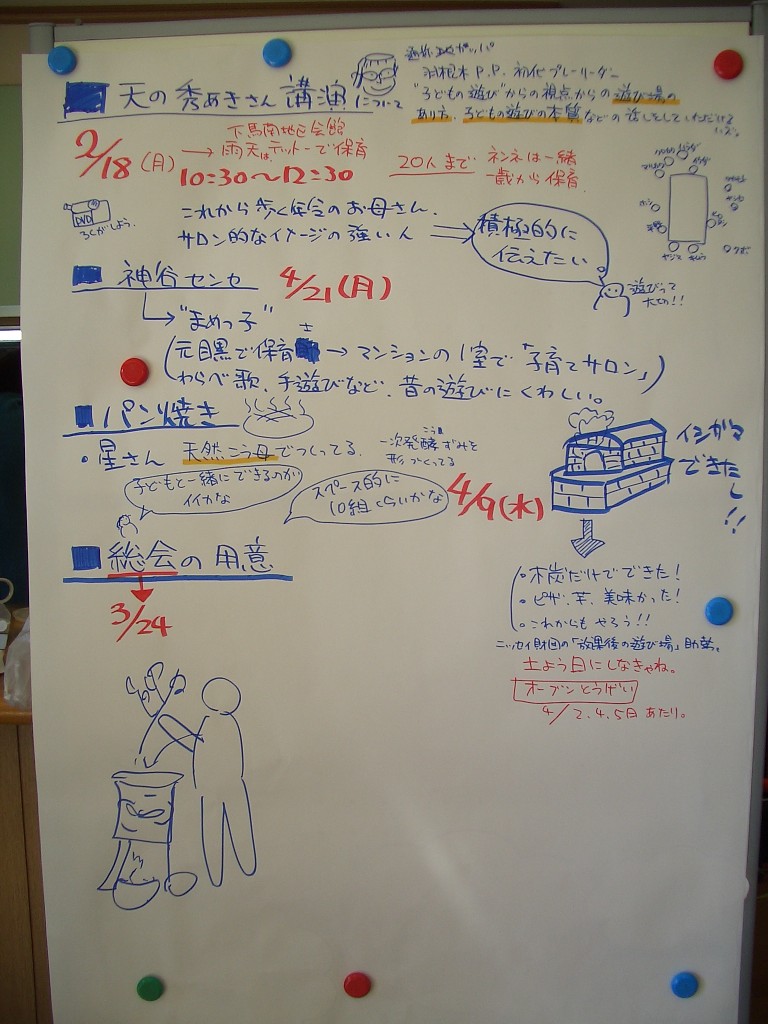 天の秀あきさん講演について
羽根木P.P. 初代プレーリーダー
"子どもの遊び"からの視点からの遊び場の
あり方、子どもの遊びの本質などの話しをしていただける
ハズ。
2/18(月)
下馬南地区会館
→雨天は、デットーで保育
10:30〜12:30
20人まで ネンネは一緒
一歳から保育.
DVD
ろくがしよう.
これから歩く年令のお母さん.
サロン的なイメージの強い人
積極的に
伝えたい。
遊びって
大切!!
神谷センセ 4/21(月)
"まめっ子"
元目黒で保育士→マンションの1室で「子育てサロン」
わらべ歌、手遊びなど、昔の遊びにくわしい。
パン焼き
・星さん 天然こう母でつくってる.
こう母
一次発酵ずみを
形づくってる
子どもと一緒にできるのが
イイかな
スペース的に
10組くらいかな
4/9(水)
イシガマ
できた
し!!
・木炭だけでできた!
・ピザ、芋、美味かった!
・これからもやろう!!
ニッセイ財団の「放課後の遊び場」助成。
土よう日にしなきゃね。
オーブンとうげい
4/2.4.5日あたり。
総会の用意
3/24